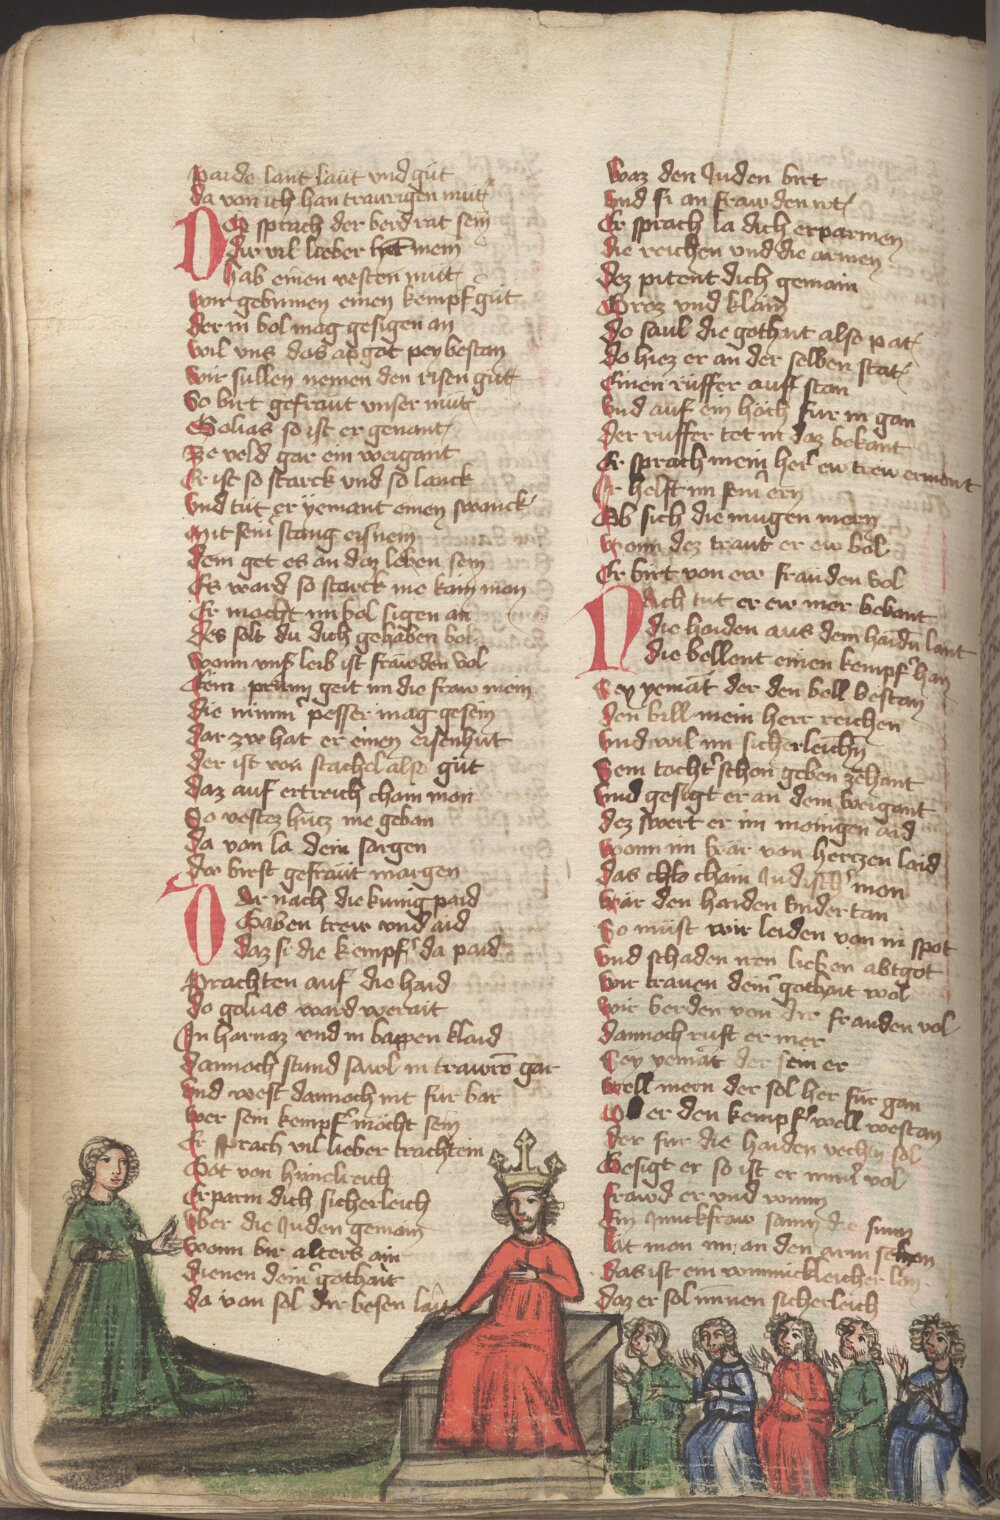 paide lant laut und güt
da von ich han traurigen mut
Der sprach der verdrat sein
du vil lieber herr mein
hab einen vesten mut
wir gebinnen einen kempf güt
der in vol mag gesigen an
wil uns das apgot pey bestan
wir sullen nemen den risen güt
so birt gefraut unser mut
Golias so ist er genant
ze veld gar ein weigant
Er ist so starck und so lanck
und tüt er yemant einen swanck
mit sein stang eisnein
dem get es an daz leben sein
Es ward so starck nie kain man
Er mocht im vol sigen an
des solt du dich gehaben vol
wann unser leib ist frawden vol
sein prünn geit im die fraw mein
die nimmer pesser mag gesein
dar zw hat er einen eisenhut
der ist von stachel also güt
daz auf ertreich chain man
so vestez hutz nie geban
da van la dein sorgen
dw birst gefraüt morgen
Dar nach die kunig paid
Gaben trew und aid
daz si die kempfer da paid
prachten auf die haid
do golias ward werait
In harnaz und in bappen klaid
dannoch stund sawl in trawren gar
und west dannoch nit fur bar
wer sein kempfer möcht sein
Er sprach vil lieber trachtein
Got von himelreich
Erparm dich sicherleich
uber die Juden gemain
wann bir alters ain
dienen deiner gothait
da van sol dir besen lait
waz den Juden birt
und si an frawden irt
Er sprach la dich erparmen
die reichen und die armen
dez pitent dich gemain
Groz und klain
do saul die gothait also pat
do hiez er an der selben stat
Einen rüffer auff stan
und auf ein höch fur in gan
der ruffer tet in daz bekant
Er sprach mein her ew trew ermant
Ir helft im sein ern
Ob sich die mugen mern
wann dez traut er ew vol
Er birt von ew fräuden vol
Nach tut er ew mer bekant
die haiden aus dem haiden lant
die bellent einen kempfer han
Sey yemant der den vell bestan
den bill mein herr reichen
und wil im sicherleichen
Sein tochter schon geben zehant
und gesigt er an dem weigant
dez swert er im mainigen aid
wann im bär van hertzen laid
das chlo chain Judischer man
bär den haiden under tan
So müst wir leiden van in spot
und schaden iren lieben abtgot
wir trauen deiner gothait wol
wir berden von dir frauden vol
dannoch ruft er mer
Sey yemant der sein er
well mern der sol her für gan
Ob er den kempfer well westan
der fur die haiden vechten sol
Gesigt er so ist er immer vol
frawd er und wunn
Ein Junckfraw sam die sunn
leit man im an den arm schon
das ist ein wunnickleicher lon
daz er sol minnen sicherleich